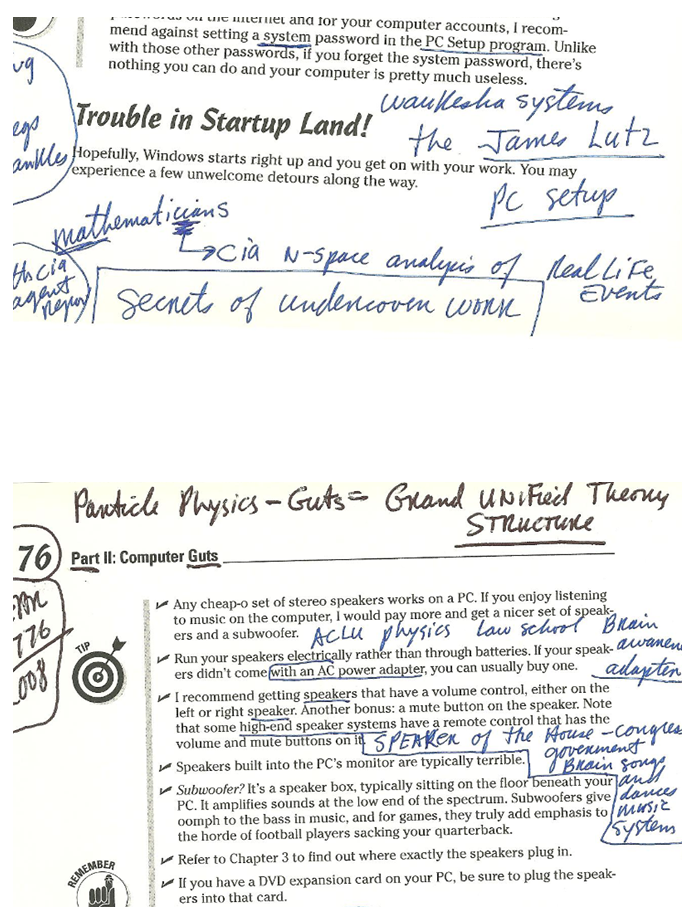 on the Internet and for your computer accounts, I recom-
mend against setting a system password in the PC Setup program. Unlike
with those other passwords, if you forget the system password, there's
nothing you can do and your computer is pretty much useless.
Trouble in Startup Land!
waukesha systems
the James Lutz
Hopefully, Windows starts right up and you get on with your work. You may
experience a few unwelcome detours along the way.
PC setup
ankles
mathematicians
cia N-space analysis of Real Life
Events
cia
agent
secrets of undercover work
Particle Physics - Guts = Grand UNiFied Theory
STRUCTURE
76
Part II: Computer Guts
776
TIP
Any cheap-o set of stereo speakers works on a PC. If you enjoy listening
to music on the computer, I would pay more and get a nicer set of speak-
ers and a subwoofer.
ACLU physics Law school Brain
Run your speakers electrically rather than through batteries. If your speak-
ers didn't come with an AC power adapter, you can usually buy one.
adapter
I recommend getting speakers that have a volume control, either on the
left or right speaker. Another bonus: a mute button on the speaker. Note
that some high-end speaker systems have a remote control that has the
volume and mute buttons on it.
SPEAKER of the House - congress
government
Speakers built into the PC's monitor are typically terrible.
Brain songs
and
dances
music
systems
Subwoofer? It's a speaker box, typically sitting on the floor beneath your
PC. It amplifies sounds at the low end of the spectrum. Subwoofers give
oomph to the bass in music, and for games, they truly add emphasis to
the horde of football players sacking your quarterback.
Refer to Chapter 3 to find out where exactly the speakers plug in.
REMEMBER
If you have a DVD expansion card on your PC, be sure to plug the speak-
ers into that card.